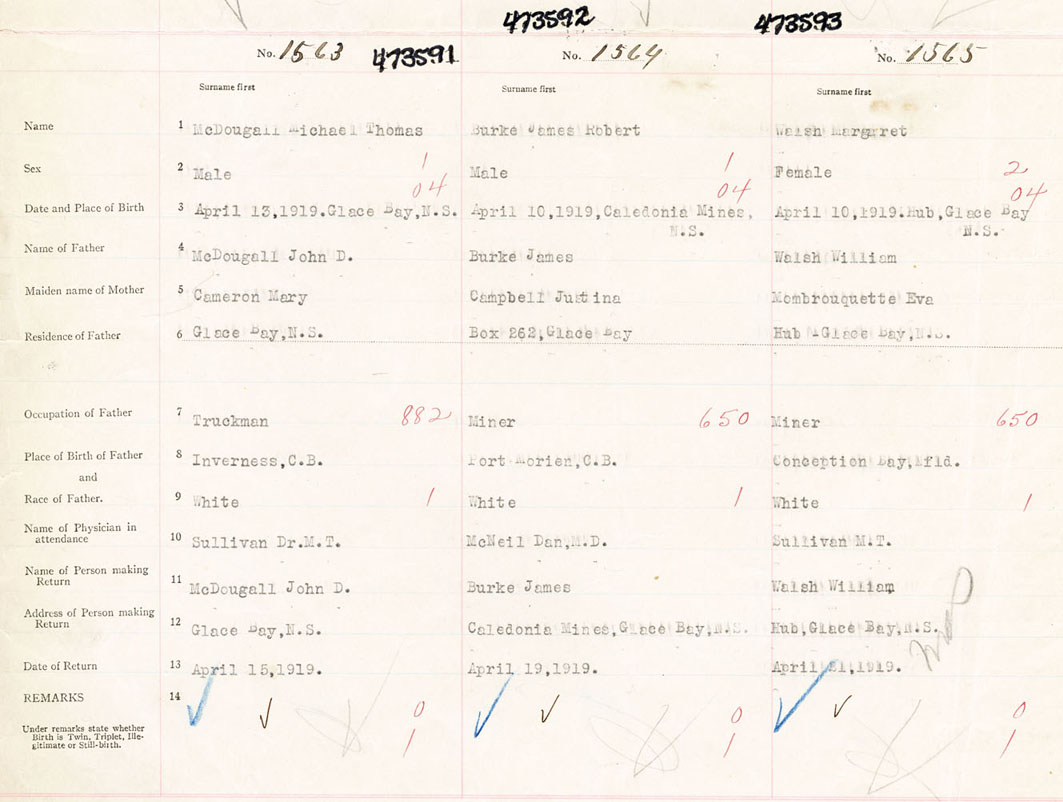 473592 473593
No. 1563 473591 No. 1564 No. 1565
Surname first Surname first Surname first
Name 1 McDougall Michael Thomas Burke James Robert Walsh Margrret
Sex 2 Male 1 Male 1 Female 2
04 04 04
Date and Place of Birth 3 April 13,1919.Glace Bay,N.S. April 10,1919,Caledonia Mines, April 10,1919.Hub,Glace Bay
N.S. N.S.
Name of Father 4 McDougall John D. Burke James Walsh William
Maiden name of Mother 5 Cameron Mary Campbell Justina Mombrouquette Eva
Residence of Father 6 Glace Bay,N.S. Box 262,Glace Bay Hub -Glace Bay,N.S.
Occupation of Father 7 Truckman 882 Miner 650 Miner 650
Place of Birth of Father 8 Inverness,C.B. Port Morien,C.B. Conception Bay,Nfld.
and
Race of Father. 9 White 1 White 1 White 1
Name of Physician in
attendance 10 Sullivan Dr.M.T. McNeil Dan,M.D. Sullivan M.T.
Name of Person making
Return 11 McDougall John D. Burke James Walsh William
Address of Person making
Return 12 Glace Bay,N.S. Caledonia Mines,Glace Bay,N.S. Hub,Glace Bay,N.S.
Date of Return 13 April 15,1919. April 19,1919. April 21,1919.
REMARKS 14
0 0 0
Under remarks state whether
Birth is Twin, Triplet, Ille-
gitimate or Still-birth.
1 1 1